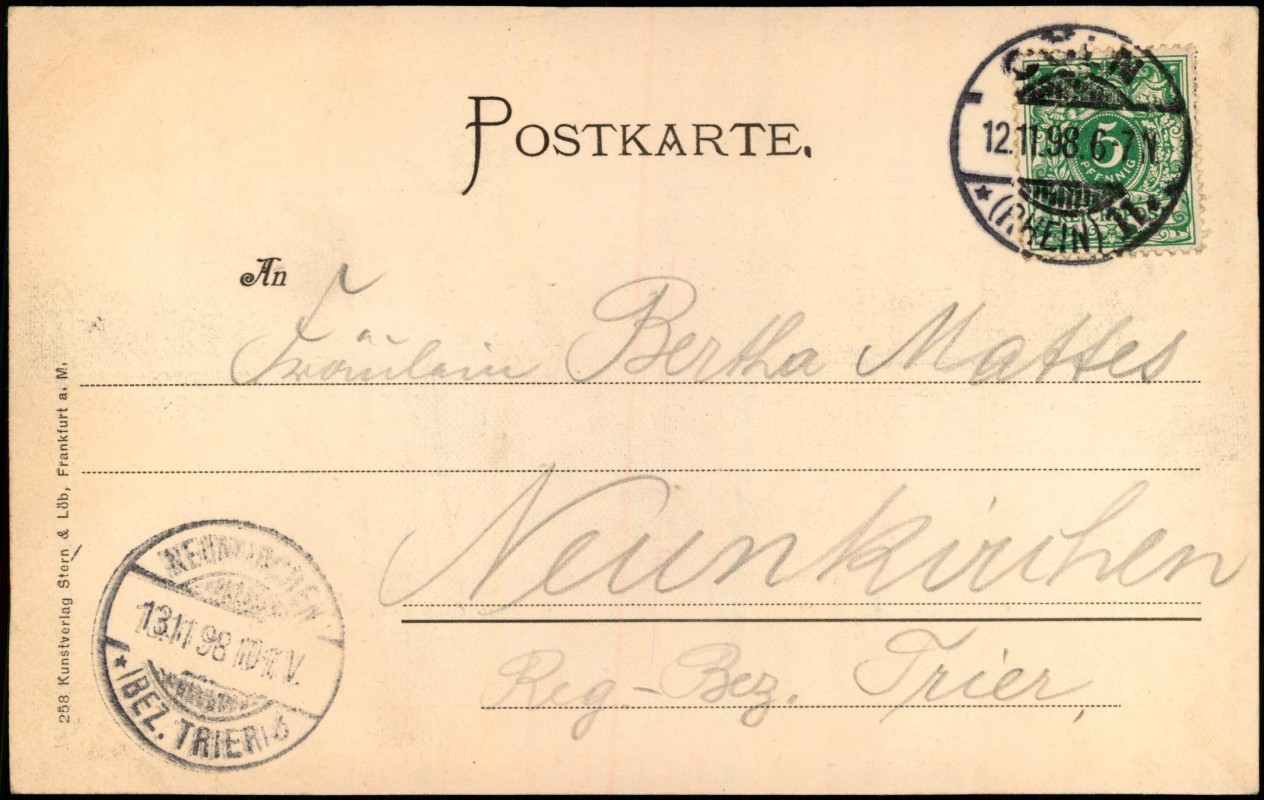 POSTKARTE.
CÖLN
12.11.98.6-7N.
* (RHEIN) 11.
5
PFENNIG
An
Fräulein Bertha Mattes
Neunkirchen
Reg-Bez. Trier,
NEUNKIRCHEN
13.11.98
V.
* (BEZ. TRIER)
258 Kunstverlag Stern & Löb, Frankfurt a. M.